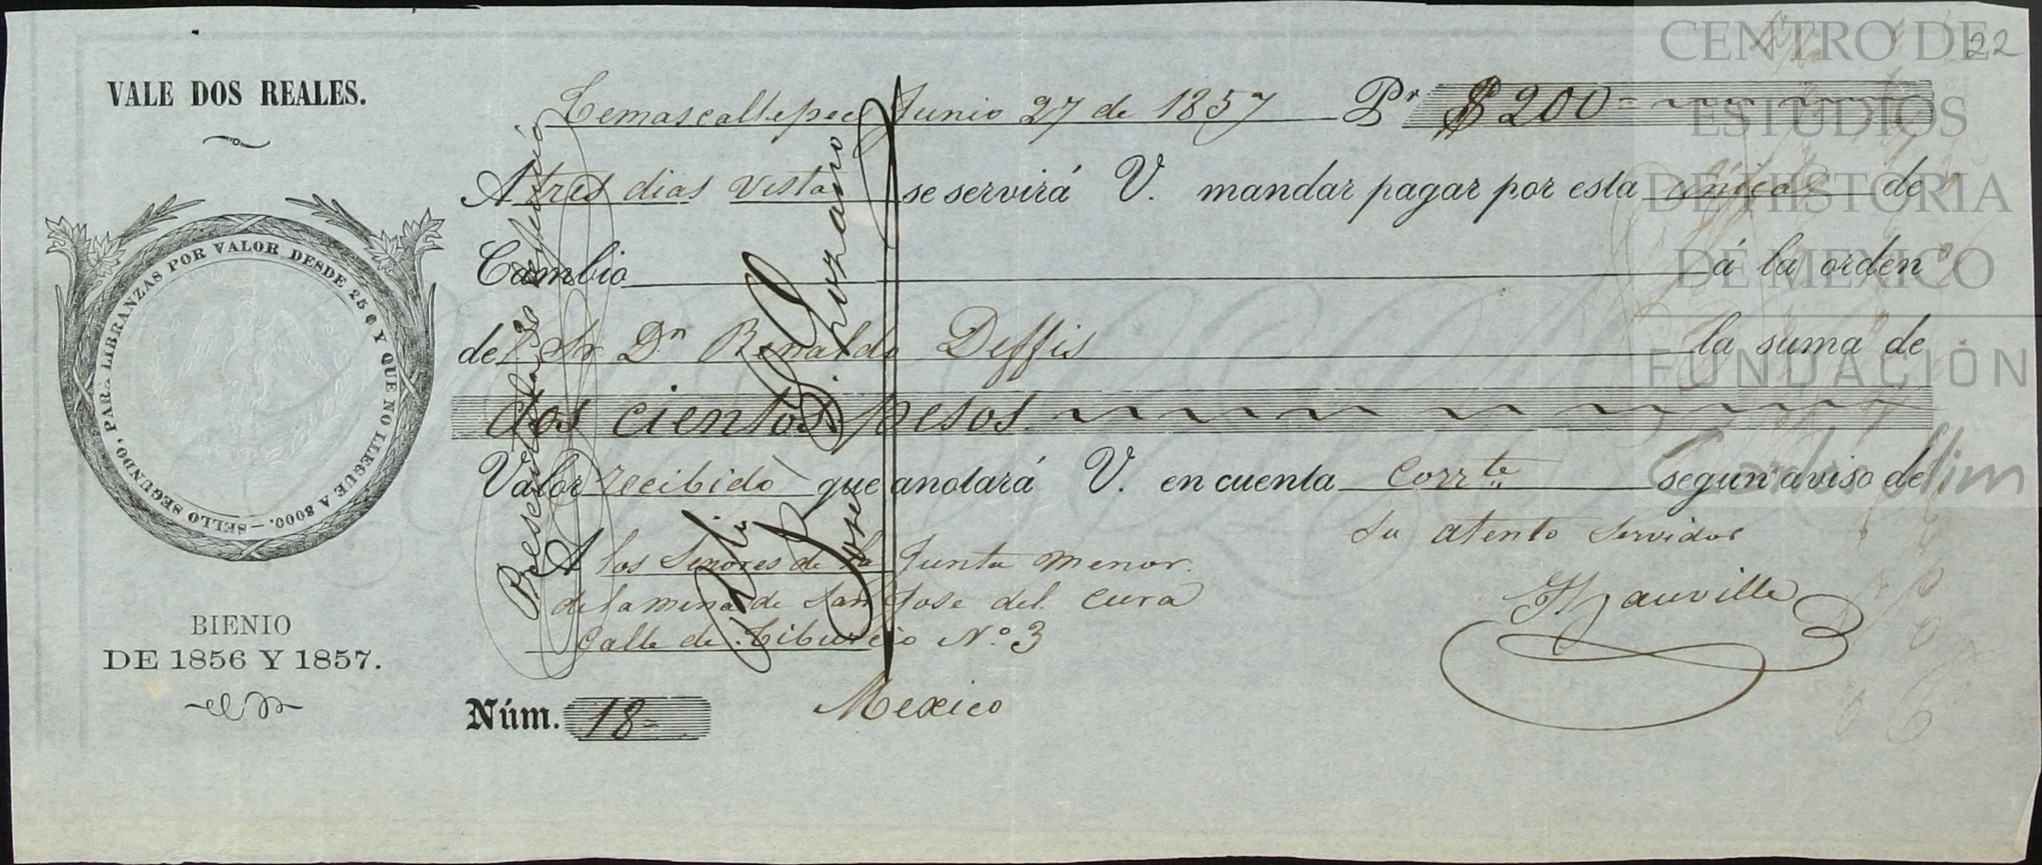 22
VALE DOS REALES.
SELLO SEGUNDO, PARA LIBRANZAS POR VALOR DESDE 25 ¢ Y QUE NO LLEGUE A 8000.—
BIENIO
DE 1856 Y 1857.
Temascaltepec Junio 27 de 1857 Pr. $200=
A tres dias vista se servirá V. mandar pagar por esta unica de
Cambio á la orden
de l Sr Dn Renaldo Deffis la suma de
dos cientos pesos
Valor recibido que anotará V. en cuenta corrte segun aviso de
Su atento Servidor
A los Senores de la Junta Menor
de la mina de San Jose del Cura
Calle de Tiburcio No. 3
Mexico
Núm. 18=
Jose Lozano
CENTRO DE
ESTUDIOS
DE HISTORIA
DE MÉXICO
FUNDACIÓN
Carlos Slim